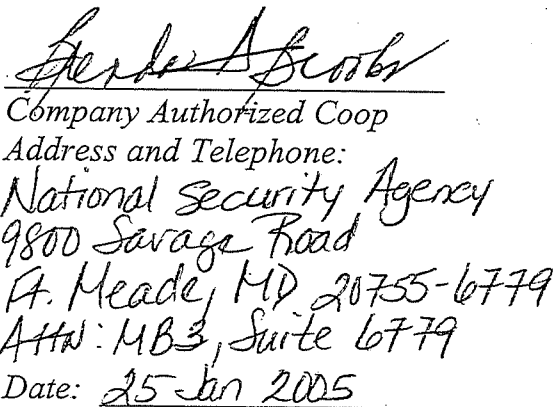 Brenda S Brooks
Company Authorized Coop
Address and Telephone:
National Security Agency
9800 Savage Road
Ft. Meade, MD 20755-6779
Attn: MB3, Suite 6779
Date: 25 Jan 2005